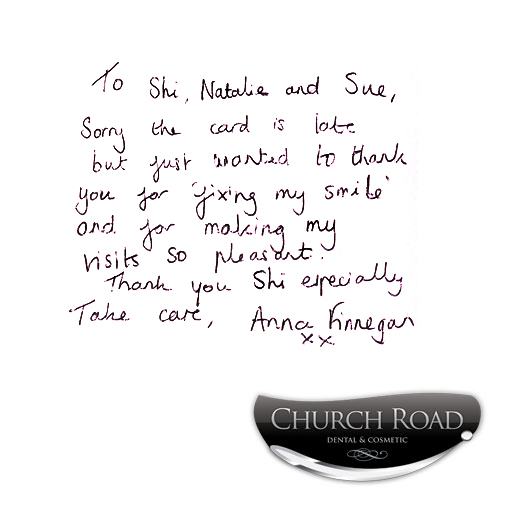 To Shi, Natalie and Sue,
Sorry the card is late
but just wanted to thank
you for 'fixing my smile'
and for making my
visits so pleasant.
Thank you Shi especially
Take care, Anna Finnegan
xx
CHURCH ROAD
DENTAL & COSMETIC